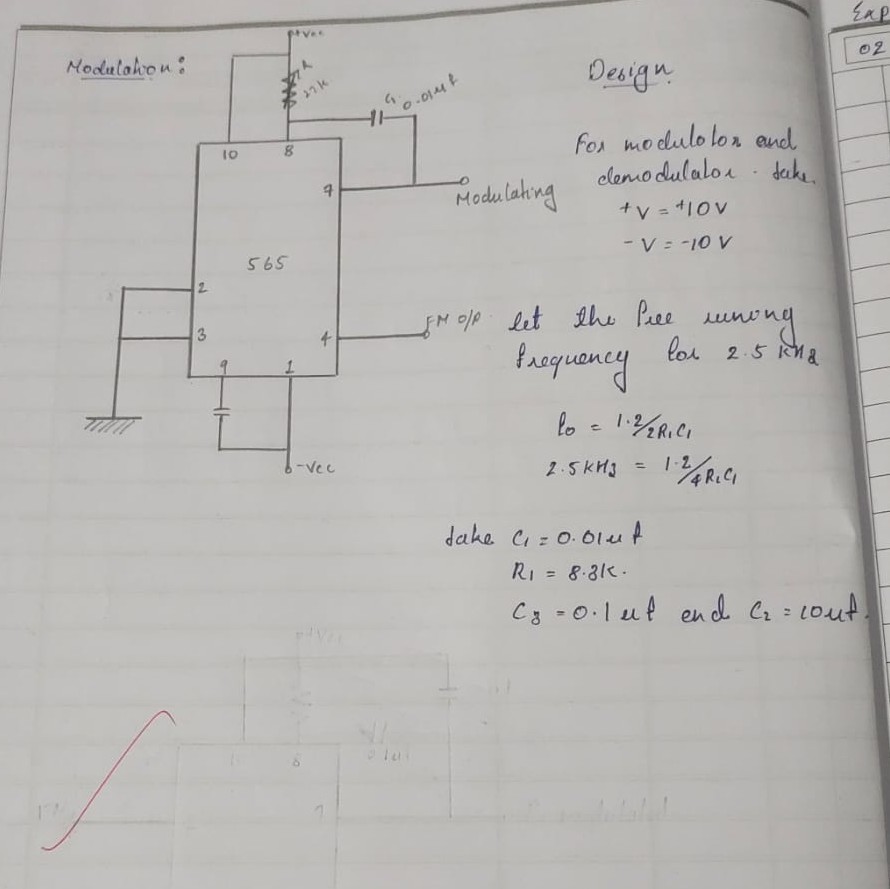 Exp
02
Modulation:
+Vcc
22K
C1 0.01μf
10
8
7
Modulating
565
2
3
4
FM O/P
9
1
-Vcc
Design
For modulator and
demodulator. take.
+V = +10V
-V = -10 V
let the free runong
frequency for 2.5 KHz
fo = 1.2/2R1C1
2.5KHz = 1.2/4R1C1
take C1 = 0.01μf
R1 = 8.3K.
C3 = 0.1μf end C2 = 10μf.
8